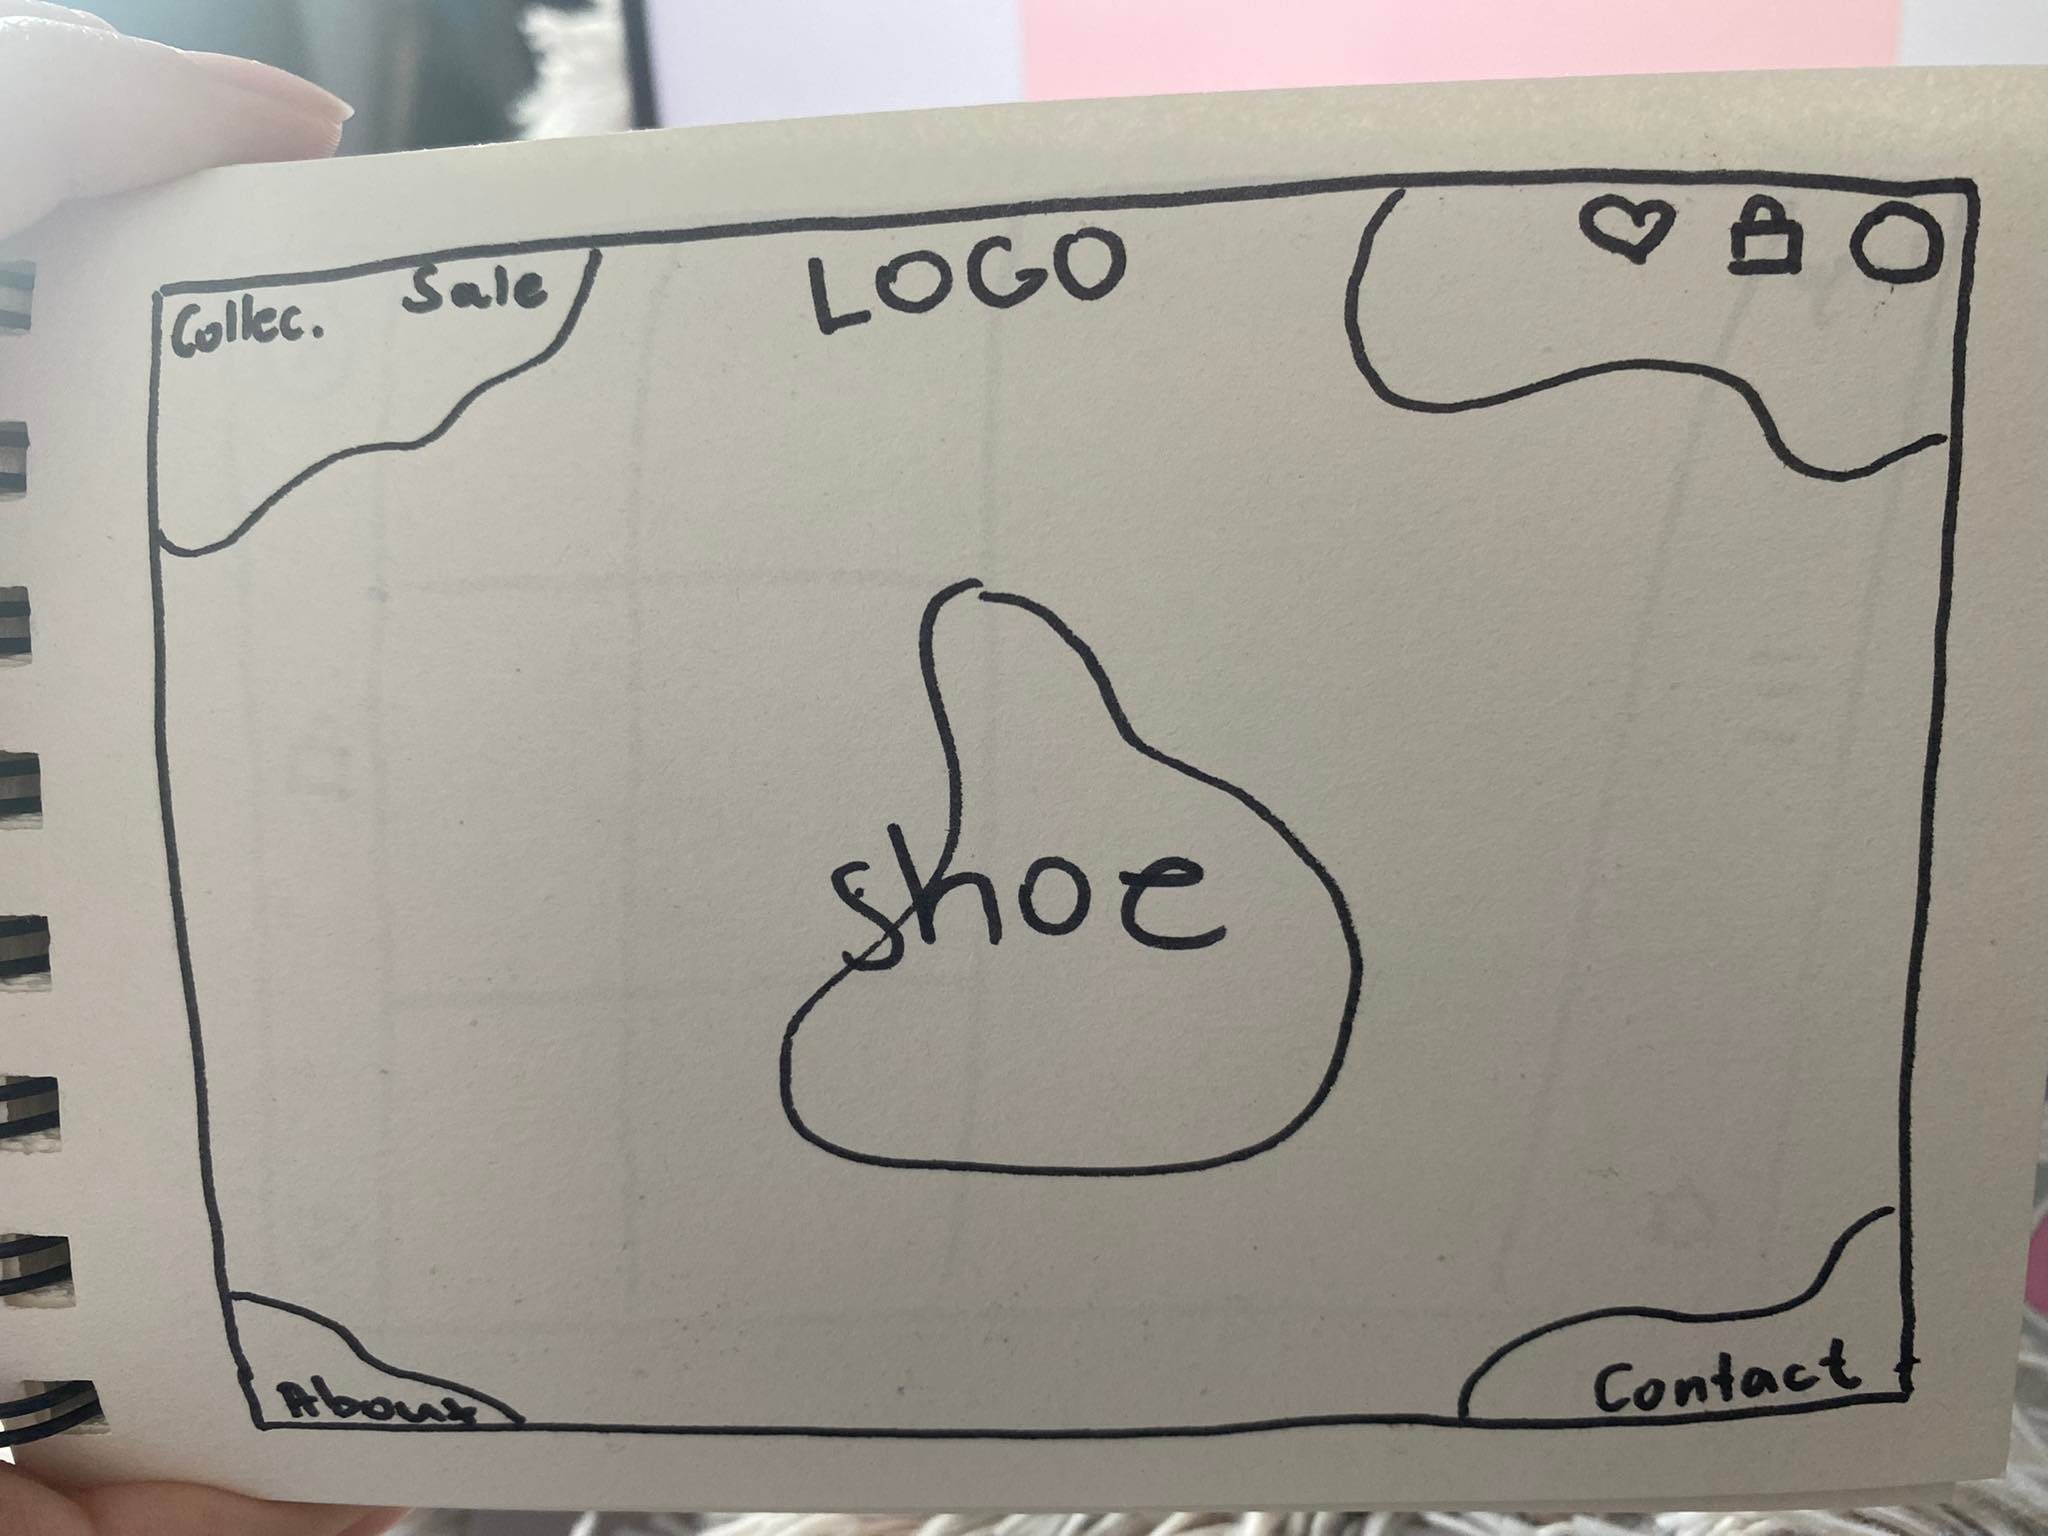 Collec. Sale
LOGO
shoe
About
Contact